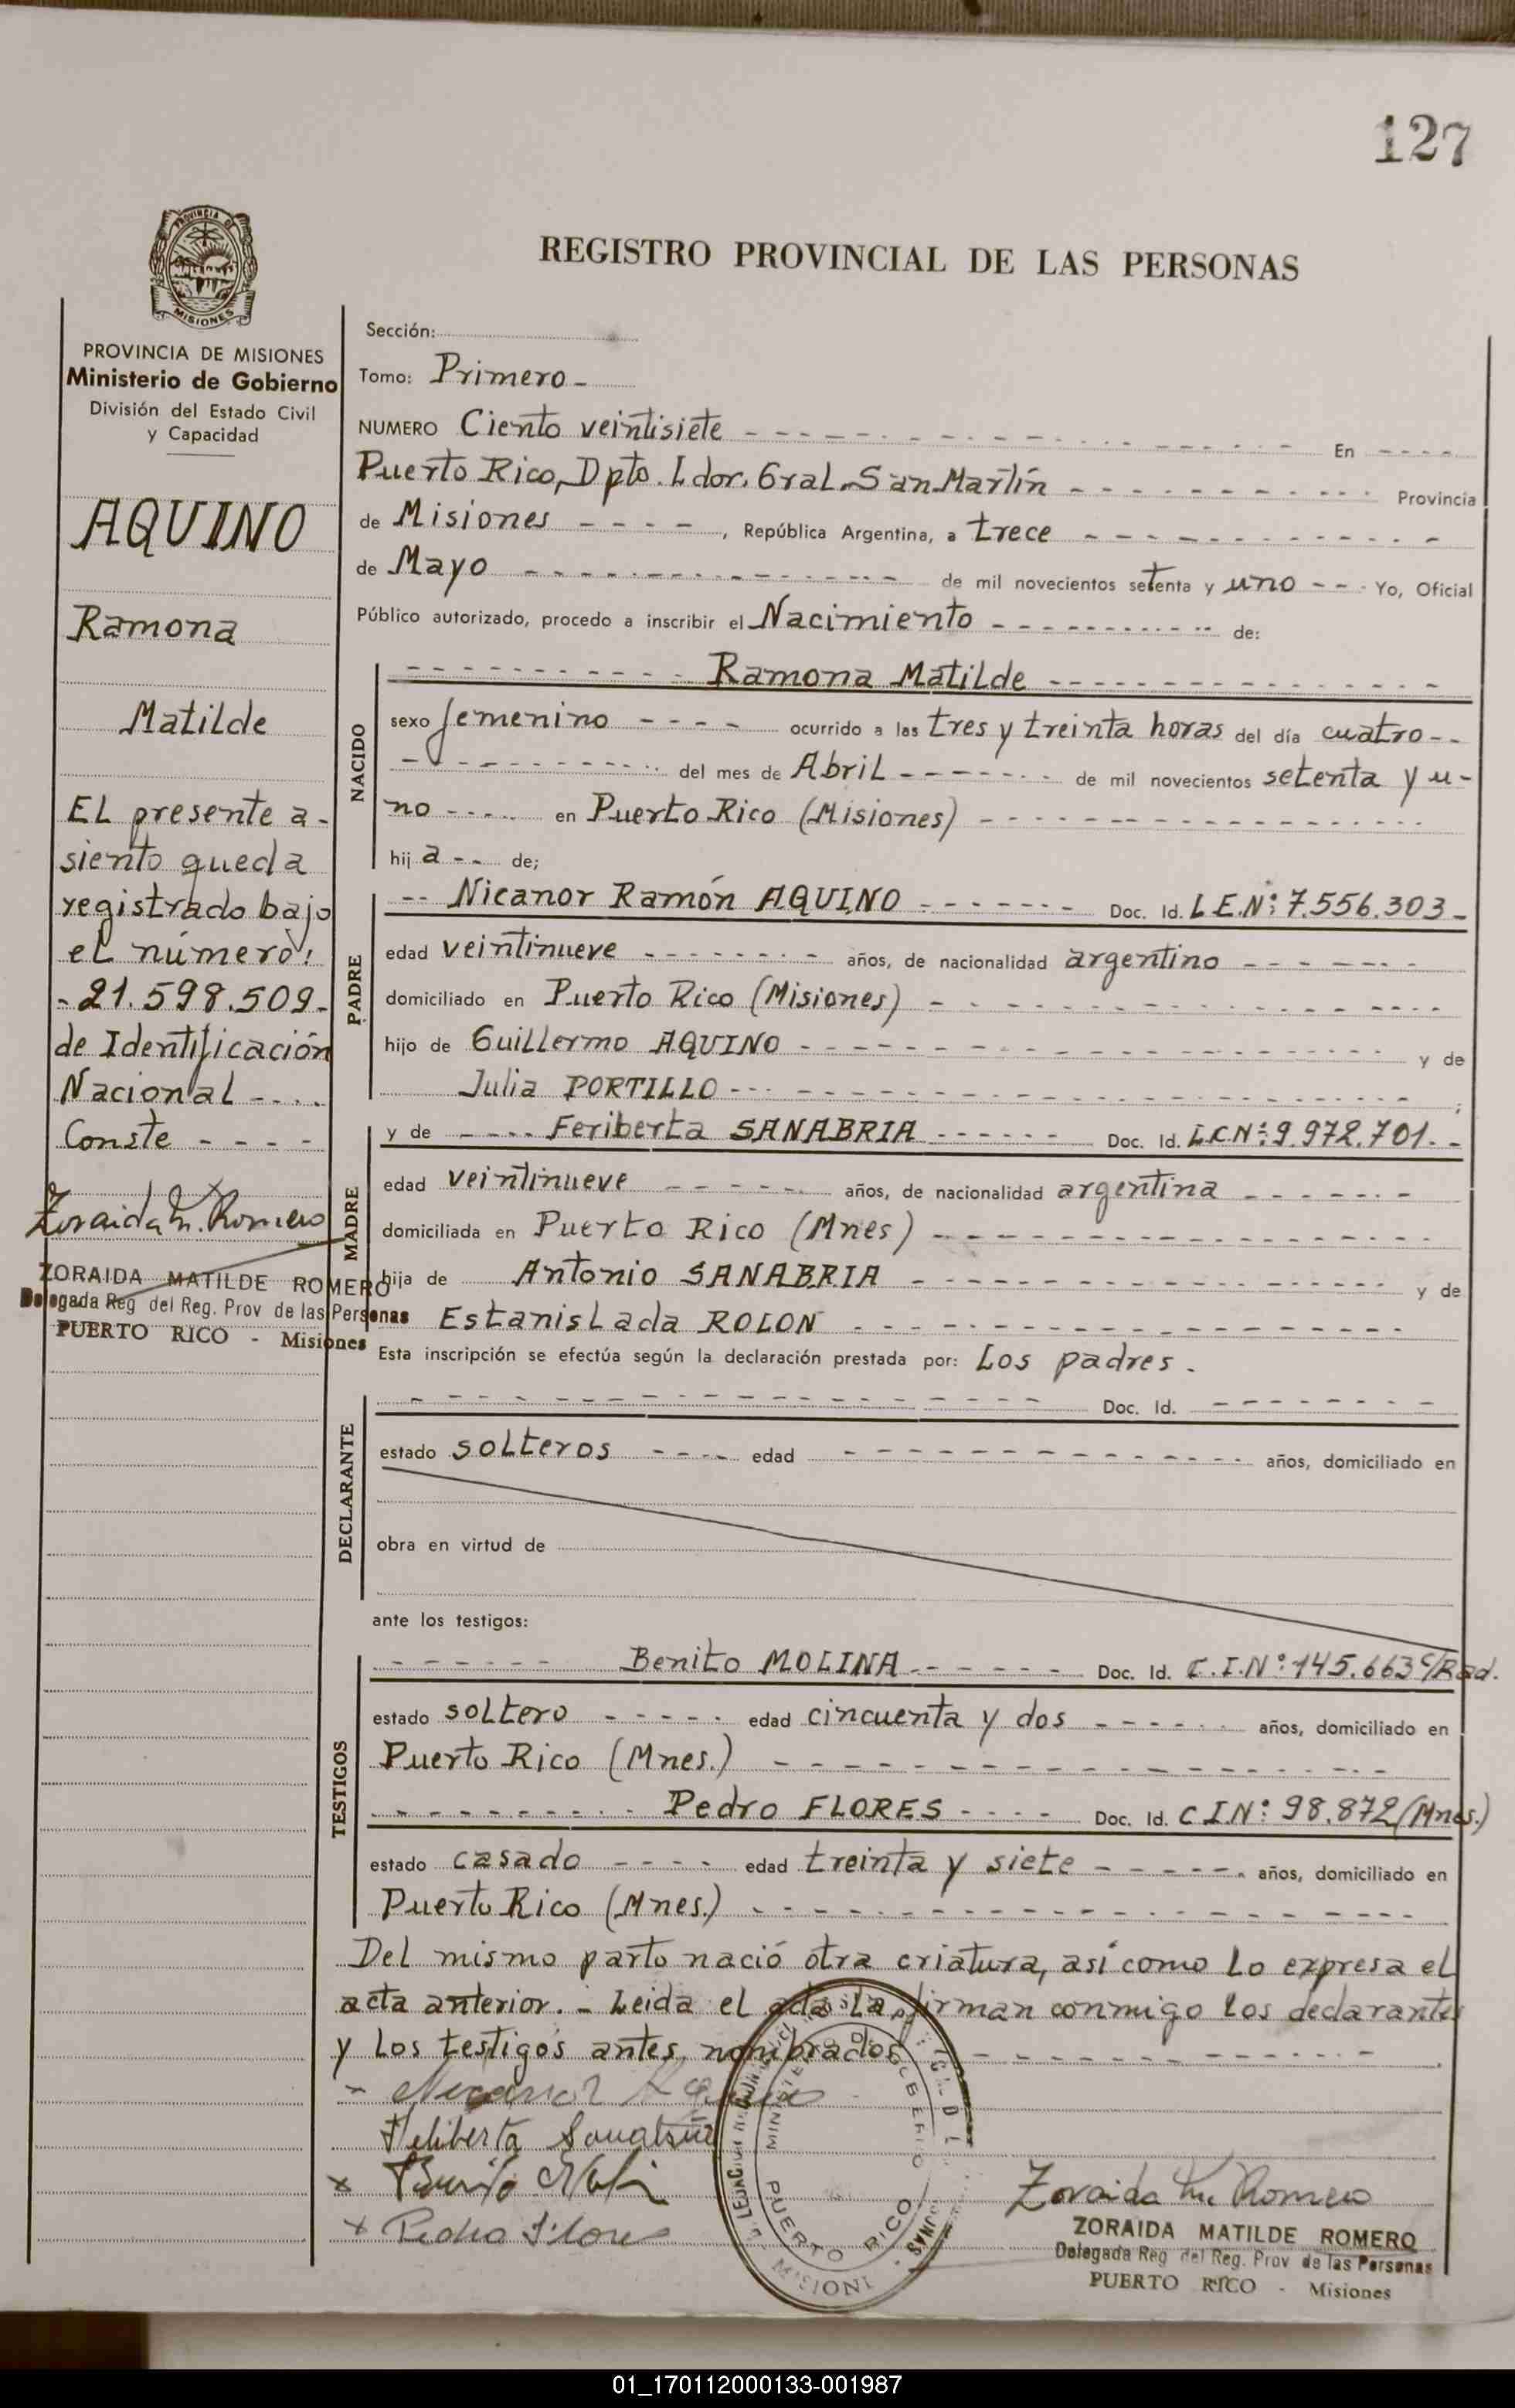 127
PROVINCIA DE
MISIONES
REGISTRO PROVINCIAL DE LAS PERSONAS
PROVINCIA DE MISIONES
Ministerio de Gobierno
División del Estado Civil
y Capacidad
AQUINO
Ramona
Matilde
EL presente a-
siento queda
registrado bajo
el número:
-21.598.509-
de Identificación
Nacional
Conste
Zoraida M. Romero
ZORAIDA MATILDE ROMERO
Delegada Reg del Reg. Prov de las Personas
PUERTO RICO - Misiones
Sección:
Tomo: Primero-
NUMERO Ciento veintisiete En
Puerto Rico, Dpto. Ldor. Gral. San Martín Provincia
de Misiones, República Argentina, a trece
de Mayo de mil novecientos setenta y uno Yo, Oficial
Público autorizado, procedo a inscribir el Nacimiento de:
NACIDO
Ramona Matilde
sexo femenino ocurrido a las tres y treinta horas del día cuatro
del mes de Abril de mil novecientos setenta y u-
no en Puerto Rico (Misiones)
hija de;
PADRE
Nicanor Ramón AQUINO Doc. Id. L.E.Nº: 7.556.303-
edad veintinueve años, de nacionalidad argentino
domiciliado en Puerto Rico (Misiones)
hijo de Guillermo AQUINO y de
Julia PORTILLO;
MADRE
y de Feriberta SANABRIA Doc. Id. L.C.Nº: 9.972.701.-
edad veintinueve años, de nacionalidad argentina
domiciliada en Puerto Rico (Mnes)
hija de Antonio SANABRIA y de
Estanislada ROLON
Esta inscripción se efectúa según la declaración prestada por: Los padres.
DECLARANTE
Doc. Id.
estado solteros edad años, domiciliado en
obra en virtud de
ante los testigos:
TESTIGOS
Benito MOLINA Doc. Id. C.I.Nº: 145.663 C/Rad.
estado soltero edad cincuenta y dos años, domiciliado en
Puerto Rico (Mnes.)
Pedro FLORES Doc. Id. C.I.Nº: 98.872 (Mnes.)
estado casado edad treinta y siete años, domiciliado en
Puerto Rico (Mnes.)
Del mismo parto nació otra criatura, así como lo expresa el
acta anterior.- Leida el acta la firman conmigo los declarantes
y los testigos antes nombrados
Nicanor R Aquino
Feliberta Sanabria
Pedro Flores
MINISTERIO DE GOBIERNO
PUERTO RICO
MISIONES
Zoraida M. Romero
ZORAIDA MATILDE ROMERO
Delegada Reg del Reg. Prov de las Personas
PUERTO RICO - Misiones
01_170112000133-001987